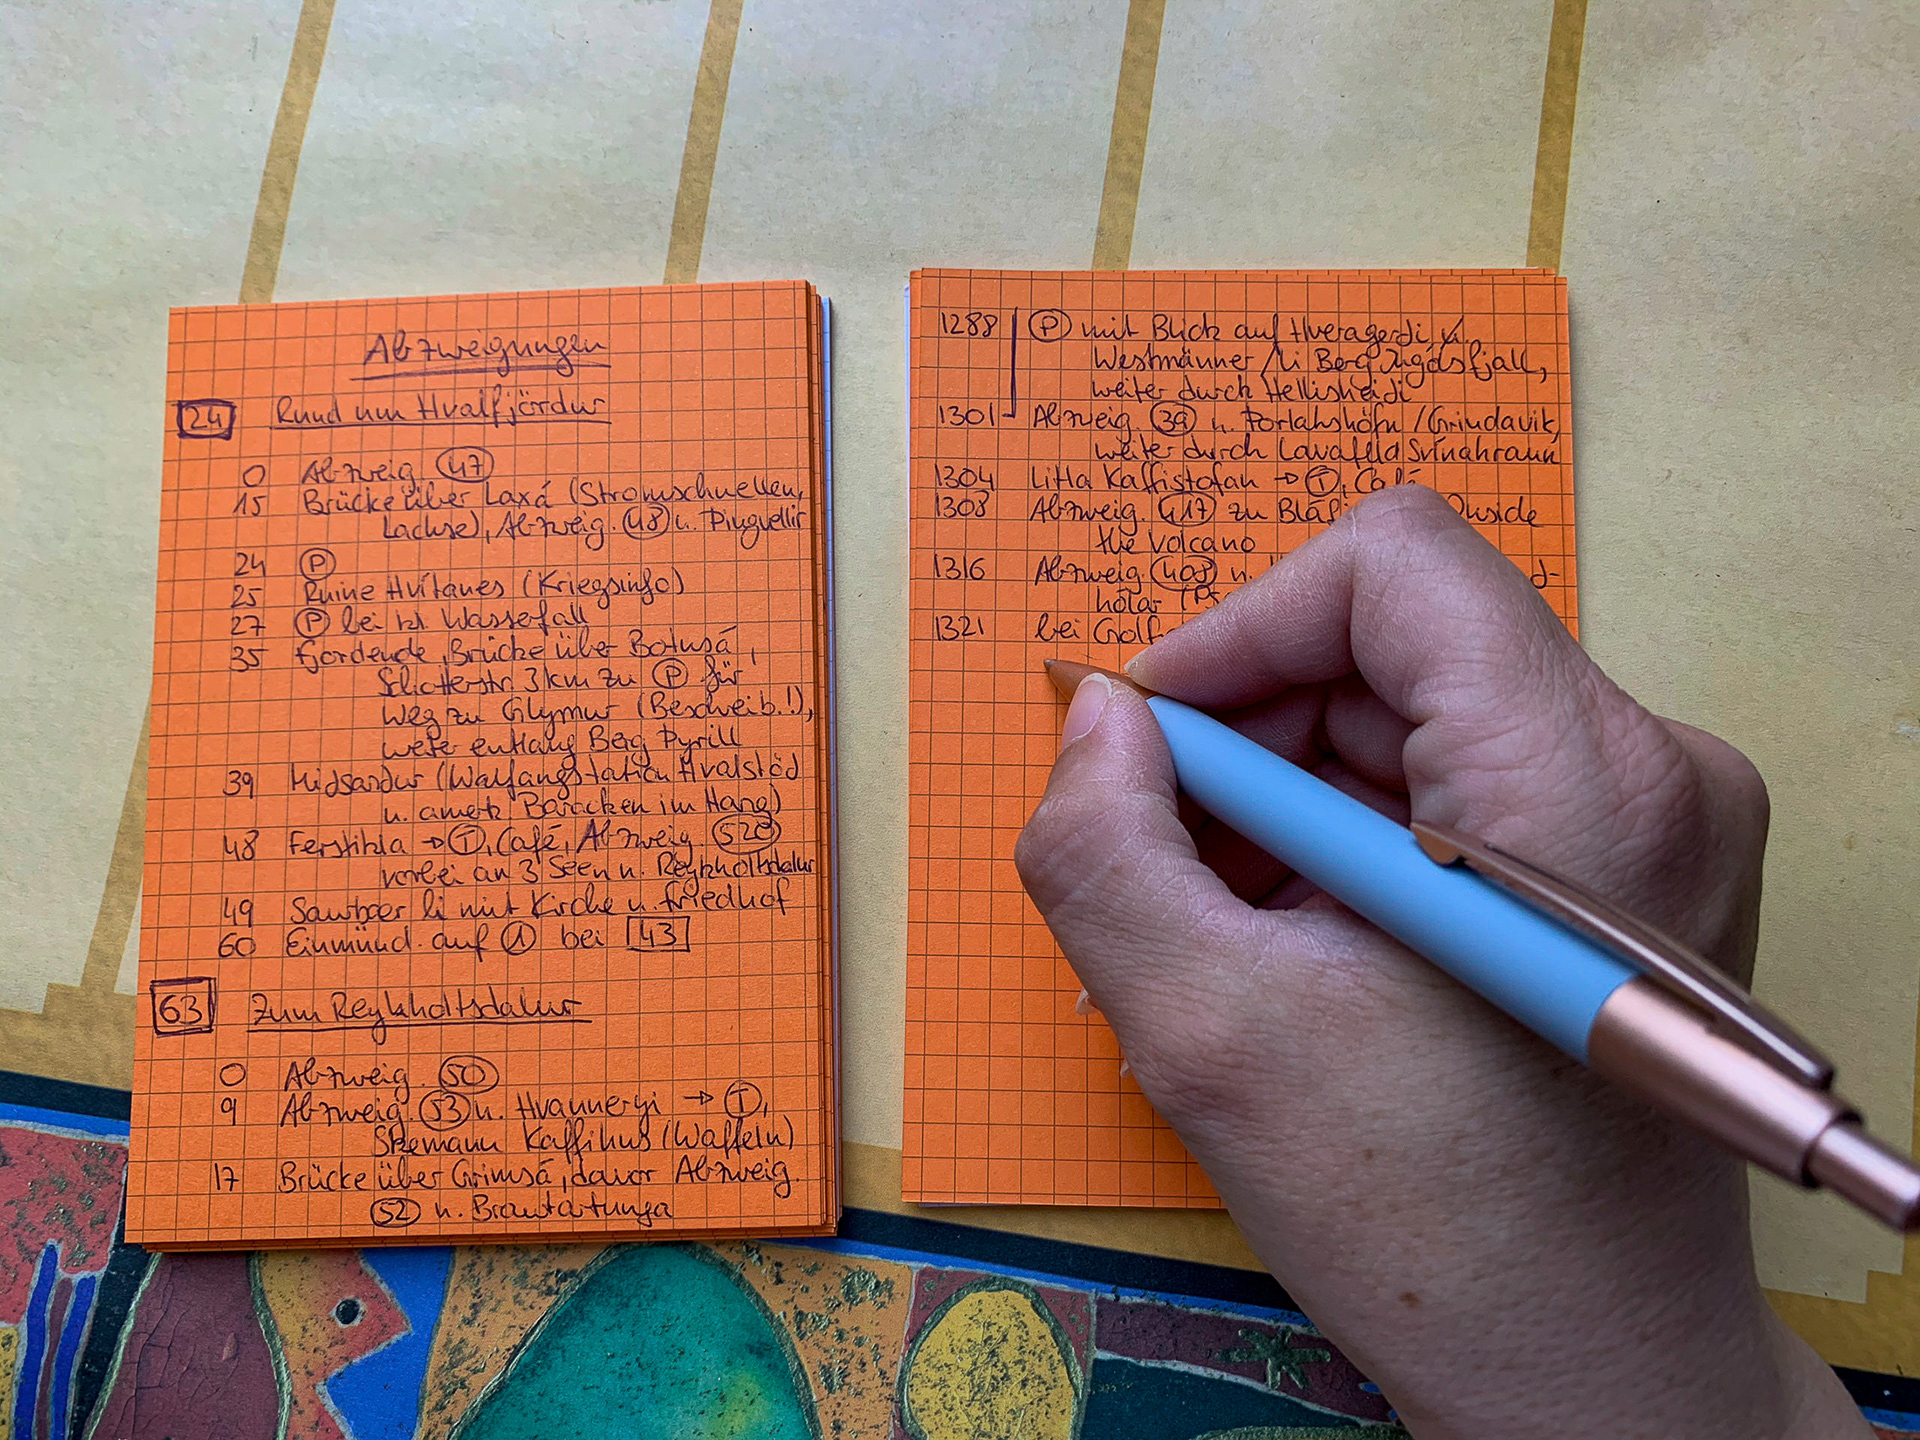 Abzweigungen
24 Rund um Hvalfjördur
0 Abzweig. 47
15 Brücke über Laxá (Stromschnellen,
Lachse), Abzweig. 48 n. Þingvellir
24 P
25 Ruine Hvítanes (Kriegsinfo)
27 P bei kl. Wasserfall
35 Fjordende, Brücke über Botnsá,
Schotterstr. 3 km zu P für
Weg zu Glymur (Beschreib.!),
weiter entlang Berg Þyrill
39 Midsandur (Walfangstation Hvalstöd
u. amerik. Baracken im Hang)
48 Ferstikla → T, Café, Abzweig. 520
vorbei an 3 Seen n. Reykholtsdalur
49 Saurbaer li mit Kirche u. Friedhof
60 Einmünd. auf 1 bei 43
63 Zum Reykholtsdalur
0 Abzweig. 50
9 Abzweig. 53 n. Hvanneyri → T,
Skemann Kaffihus (Waffeln)
17 Brücke über Grimsá, davor Abzweig.
52 n. Brautartunga
1288 P mit Blick auf Hveragerdi,
Westmänner / li Berg Ingolsfjall,
weiter durch Hellisheidi
1301 Abzweig. 39 n. Þorlakshöfn / Grindavik,
weiter durch Lavafeld Svinahraun
1304 Litla Kaffistofan → T, Café
1308 Abzweig. 417 zu Bláf
the Volcano
1316 Abzweig. 408 n.
hólar
1321 bei Golf